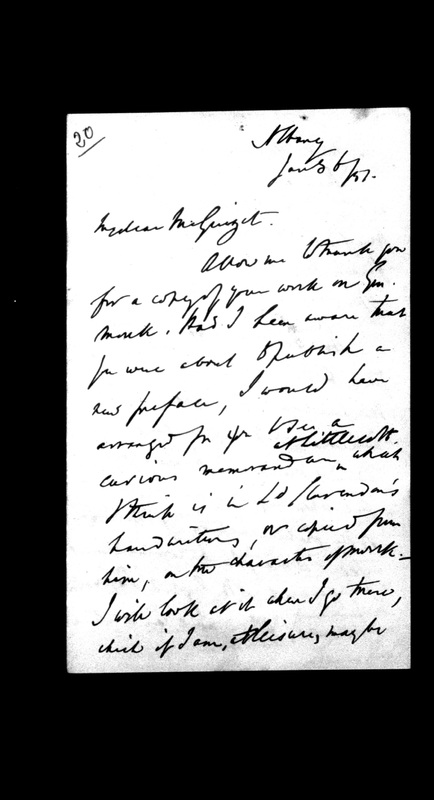 20
Albany
Jan 36/87.
My dear Mr Guizot.
Allow me to thank you
for a copy of your work on Gen.
Monk. Had I been aware that
you were about to publish a
new preface, I would have
arranged for yr to see a
curious memorandum at Littlecote. which
I think is in Ld Clarendon's
handwriting, or copied from
him, on the character of Monk.
I will look at it when I go there,
which if I am at leisure, may be